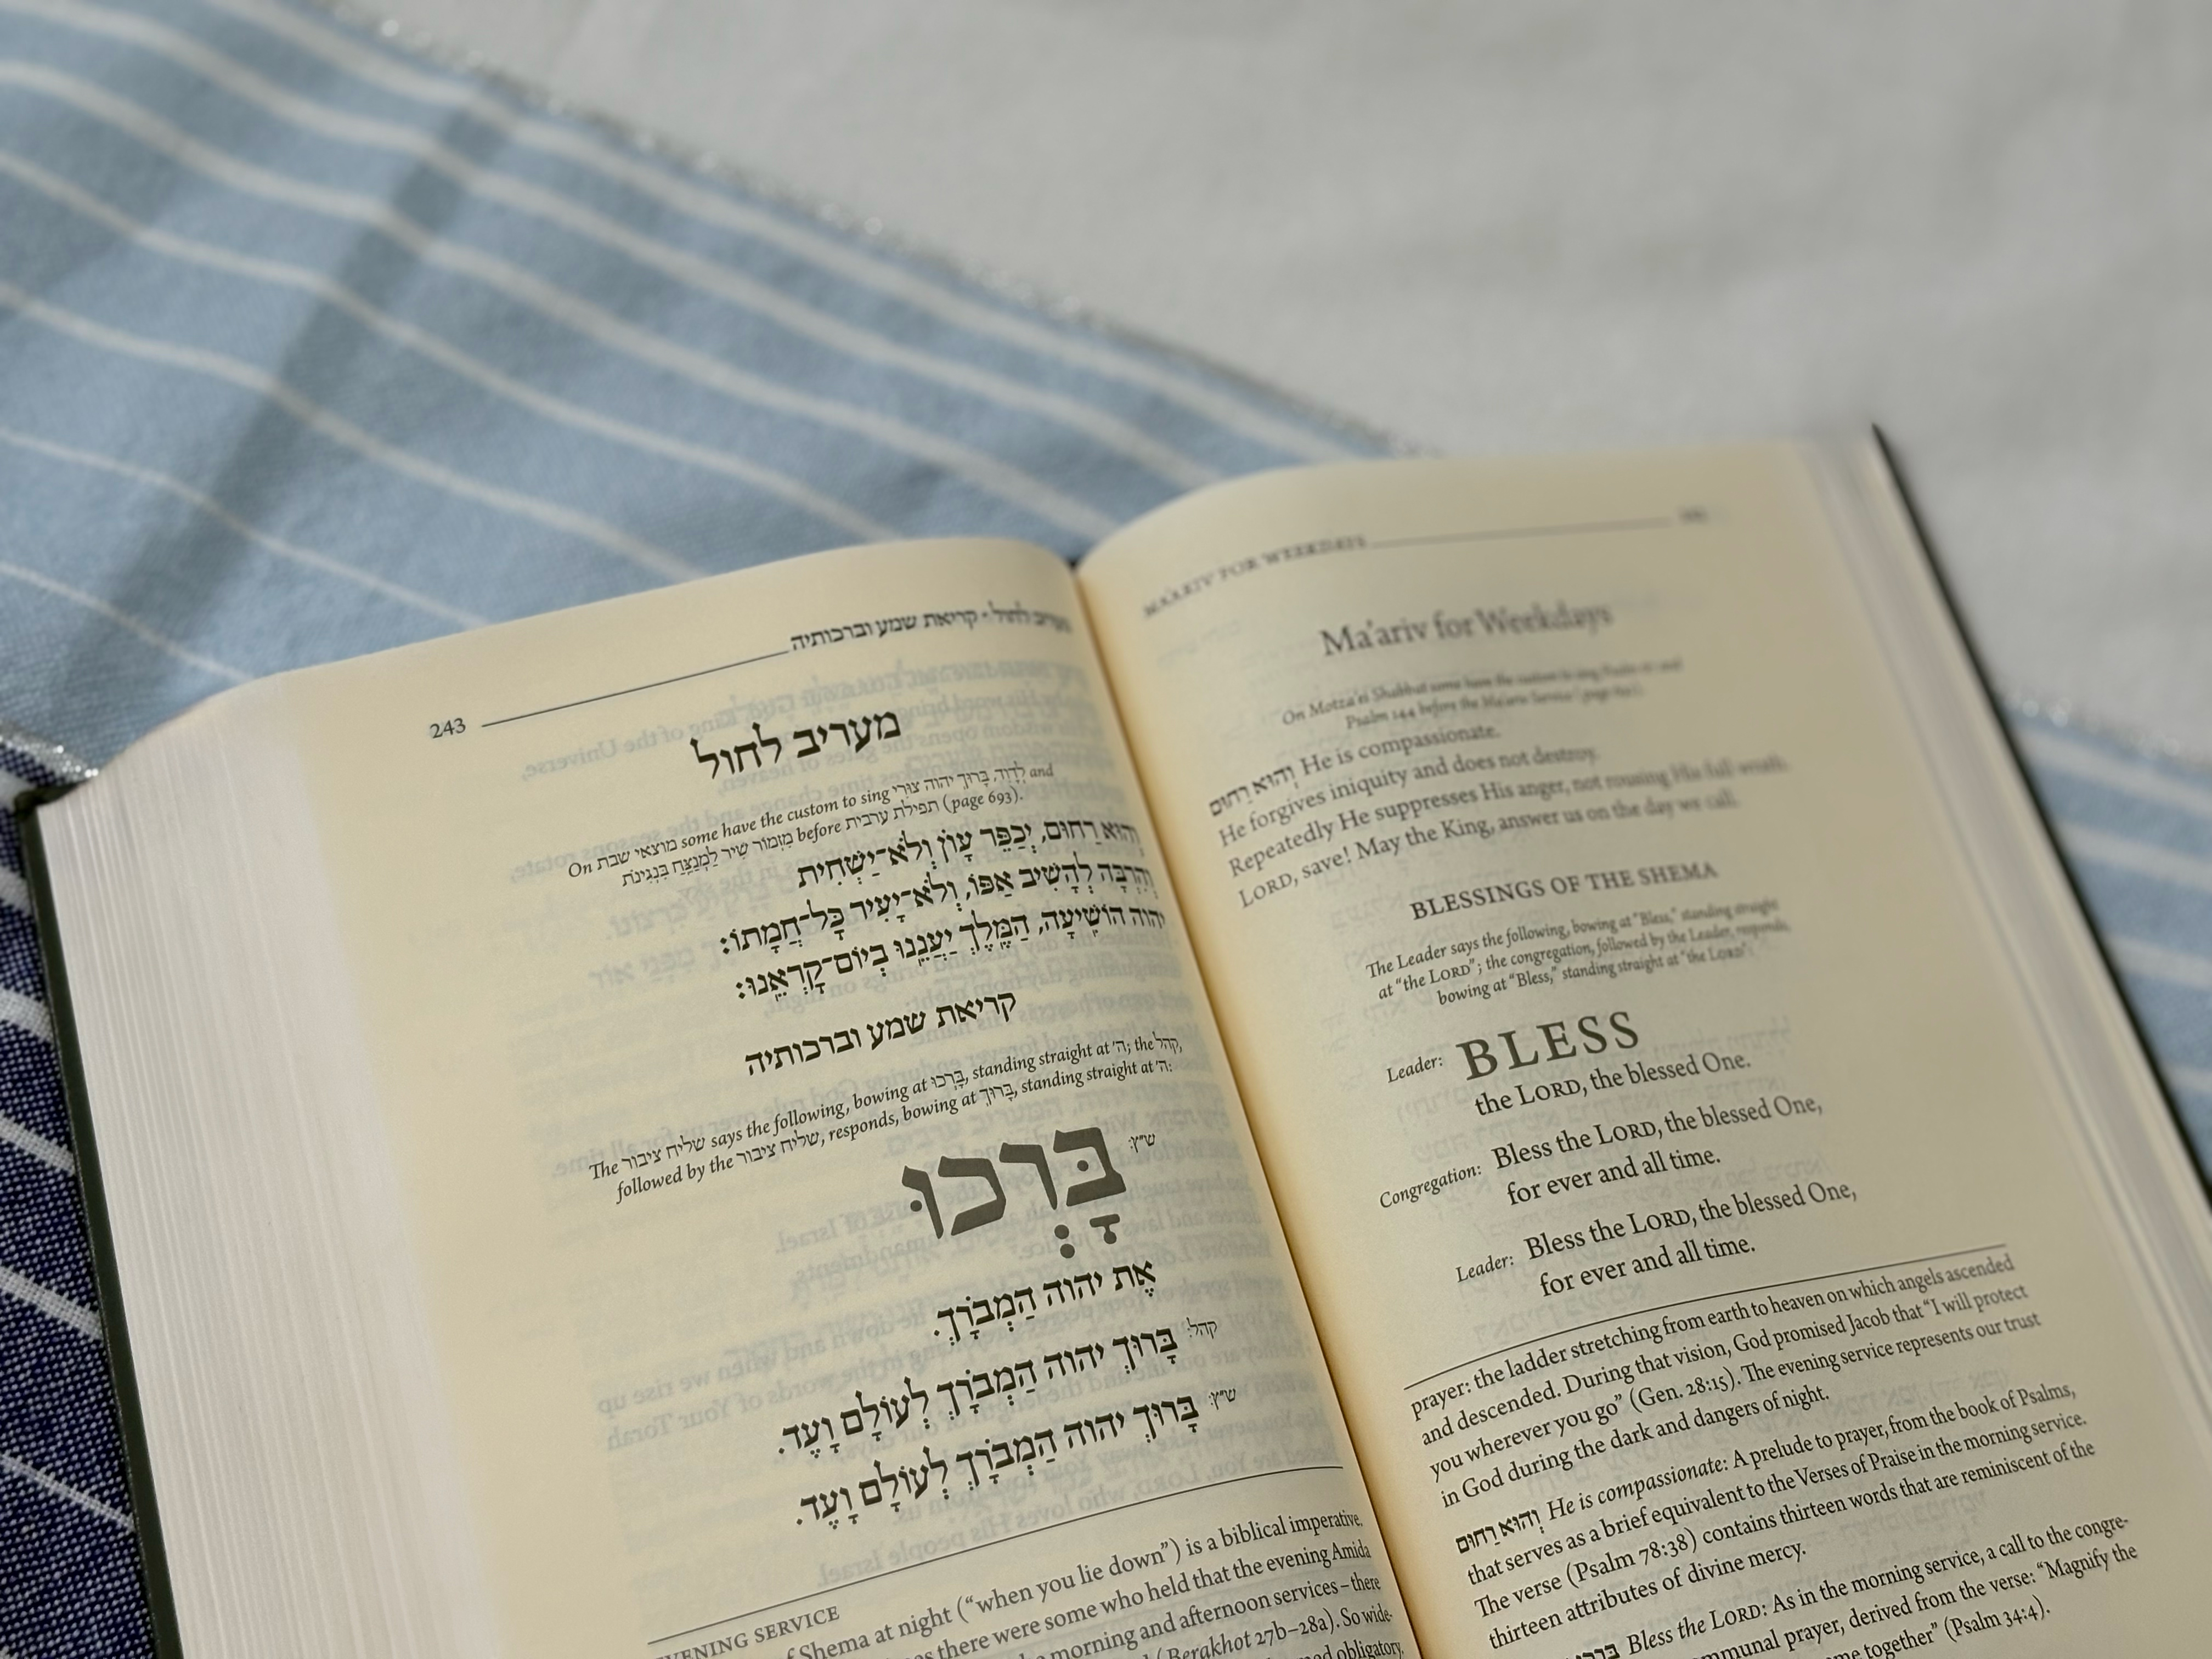 243
מעריב לחול • קריאת שמע וברכותיה
מעריב לחול
On מוצאי שבת some have the custom to sing לְדָוִד, בָּרוּךְ יהוה צוּרִי and
מִזְמוֹר שִׁיר לַמְנַצֵּחַ בִּנְגִינֹת before תפילת ערבית (page 693).
וְהוּא רַחוּם, יְכַפֵּר עָוֹן וְלֹא־יַשְׁחִית
וְהִרְבָּה לְהָשִׁיב אַפּוֹ, וְלֹא־יָעִיר כָּל־חֲמָתוֹ:
יהוה הוֹשִׁיעָה, הַמֶּלֶךְ יַעֲנֵנוּ בְיוֹם־קָרְאֵנוּ:
קריאת שמע וברכותיה
The שליח ציבור says the following, bowing at בָּרְכוּ, standing straight at ה׳; the קהל,
followed by the שליח ציבור, responds, bowing at בָּרוּךְ, standing straight at ה׳:
ש״ץ: בָּרְכוּ
אֶת יהוה הַמְבֹרָךְ.
קהל: בָּרוּךְ יהוה הַמְבֹרָךְ לְעוֹלָם וָעֶד.
ש״ץ: בָּרוּךְ יהוה הַמְבֹרָךְ לְעוֹלָם וָעֶד.
EVENING SERVICE
of Shema at night (“when you lie down”) is a biblical imperative,
there were some who held that the evening Amida
morning and afternoon services – there
(Berakhot 27b–28a). So wide-
obligatory,
MA'ARIV FOR WEEKDAYS
Ma'ariv for Weekdays
On Motza'ei Shabbat some have the custom to sing Psalm and
Psalm 144 before the Ma'ariv Service (page
וְהוּא רַחוּם He is compassionate.
He forgives iniquity and does not destroy.
Repeatedly He suppresses His anger, not rousing His full wrath.
LORD, save! May the King, answer us on the day we call.
BLESSINGS OF THE SHEMA
The Leader says the following, bowing at “Bless,” standing straight
at “the LORD”; the congregation, followed by the Leader, responds,
bowing at “Bless,” standing straight at “the LORD”:
Leader: BLESS
the LORD, the blessed One.
Congregation: Bless the LORD, the blessed One,
for ever and all time.
Leader: Bless the LORD, the blessed One,
for ever and all time.
prayer: the ladder stretching from earth to heaven on which angels ascended
and descended. During that vision, God promised Jacob that “I will protect
you wherever you go” (Gen. 28:15). The evening service represents our trust
in God during the dark and dangers of night.
וְהוּא רַחוּם He is compassionate: A prelude to prayer, from the book of Psalms,
that serves as a brief equivalent to the Verses of Praise in the morning service.
The verse (Psalm 78:38) contains thirteen words that are reminiscent of the
thirteen attributes of divine mercy.
Bless the LORD: As in the morning service, a call to the congre-
communal prayer, derived from the verse: “Magnify the
together” (Psalm 34:4).